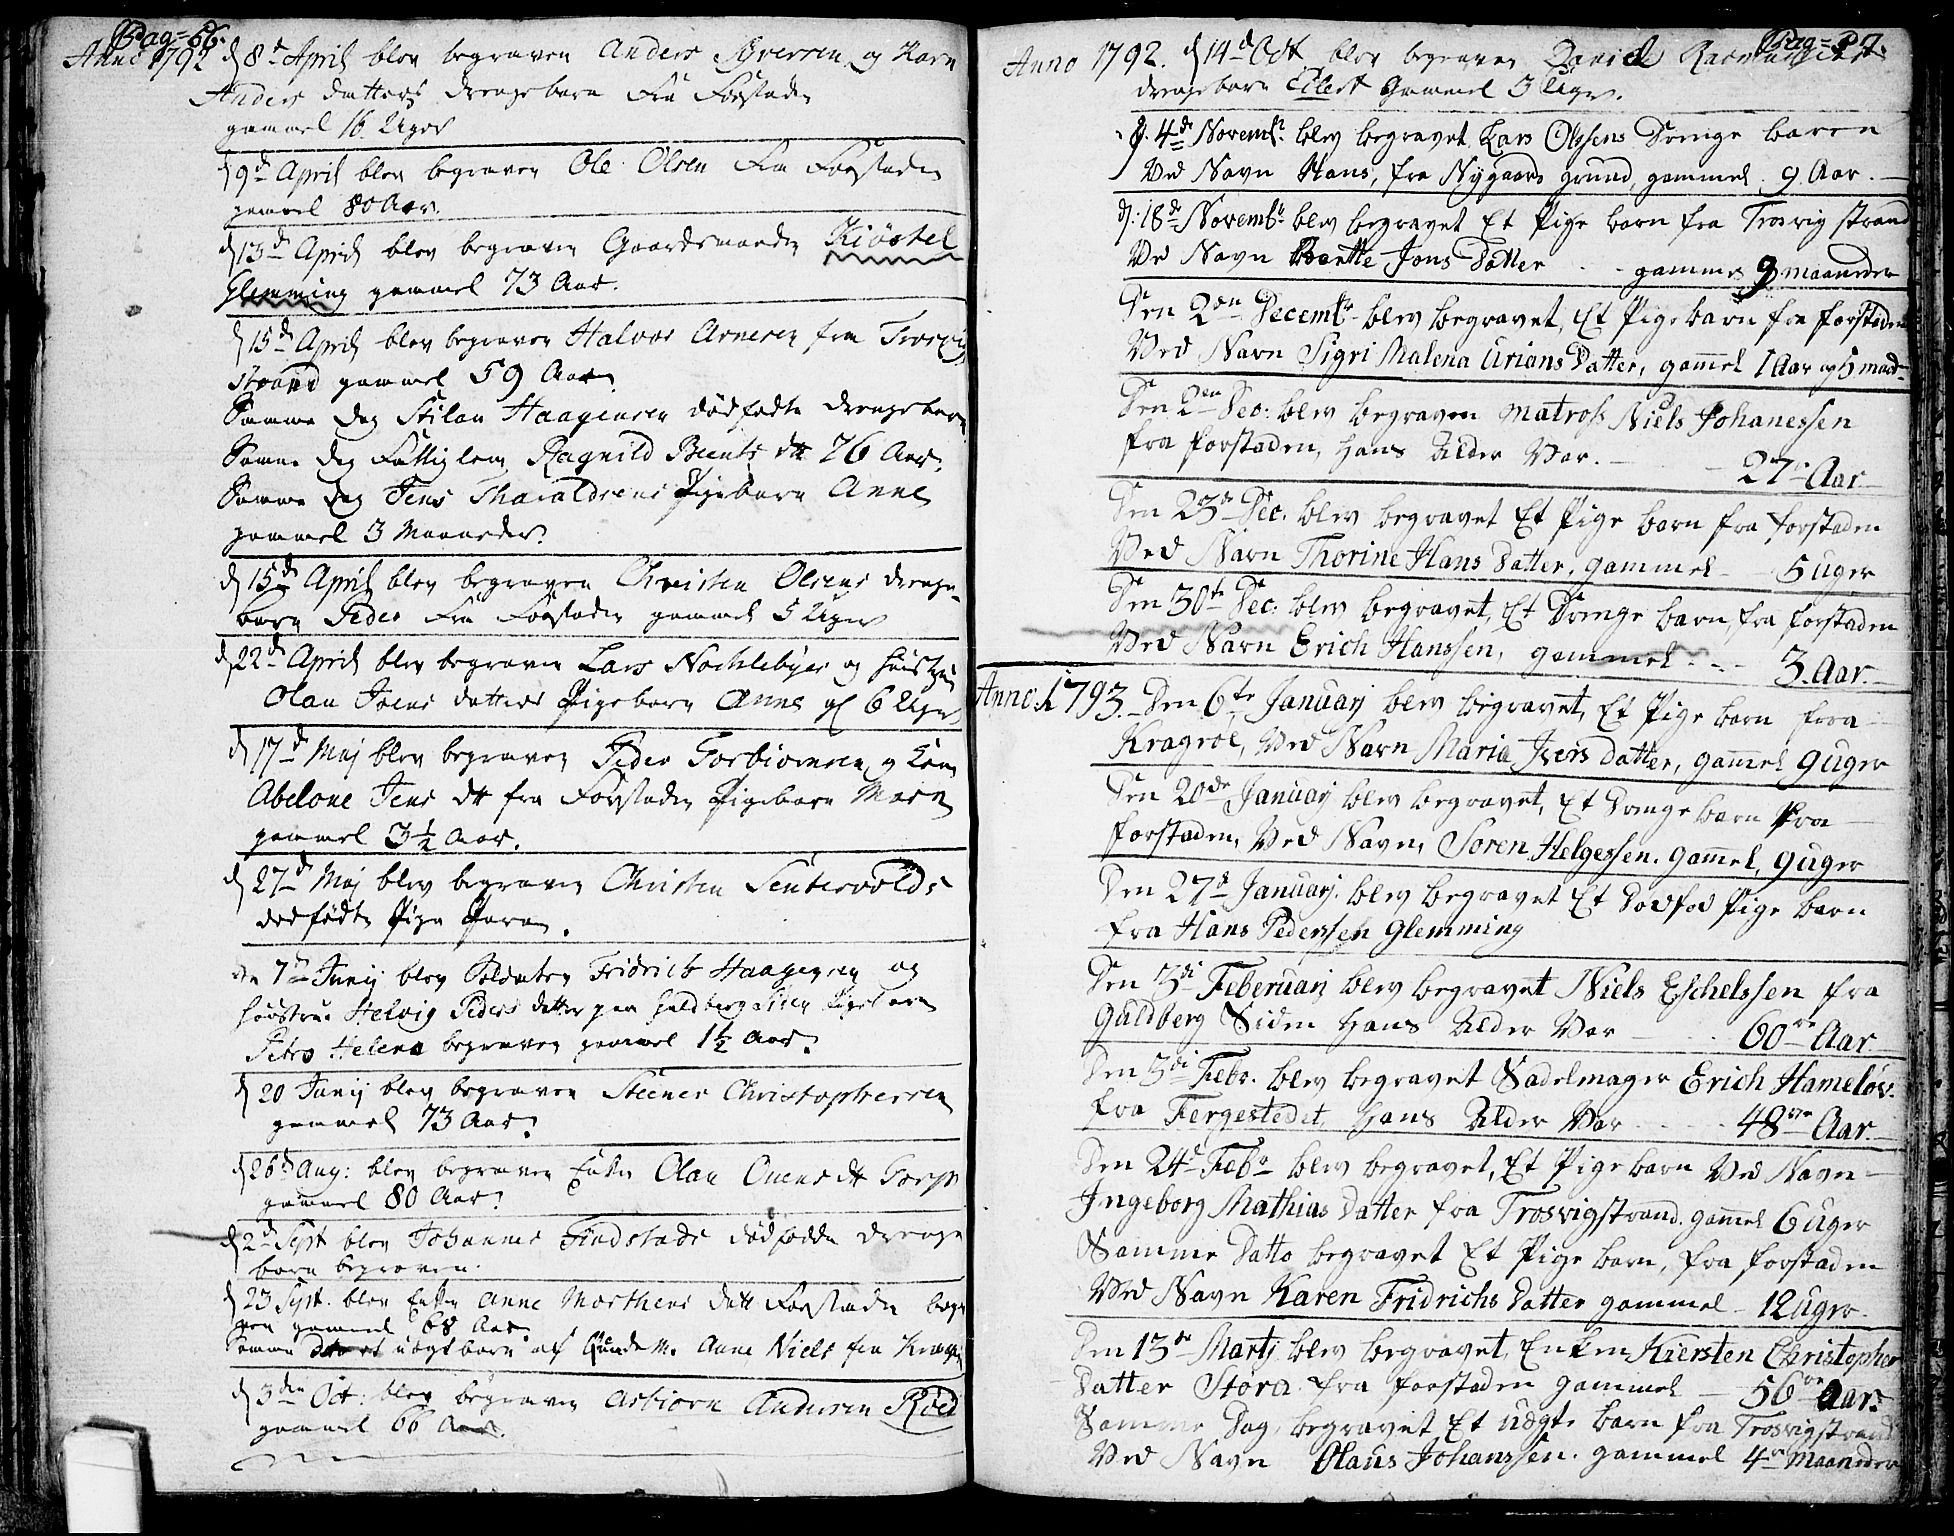 Pag: 66.
Anno 1792 d 8d April blev begraven Anders Syversen og Karn
Anders datters drengebarn Fra Forstaden
gammel 16 Uger
d 9d April blev begraven Ole Olsen Fra Forstaden
gammel 80 Aar.
d 13d April blev begraven Gaardmanden Kiöstel
Glemming gammel 73 Aar.
d 15d April blev begraven Halvor Arnesen fra Trosvig
strand gammel 59 Aar.
Samme dag Haagensen dödfödte drengebarn
Samme dag Fattiglem Ragnild Bents dtt 76 Aar.
Samme dag Jens Pigebarn Anne
gammel 3 Maaneder.
d 15d April blev begraven Christen Olsens drenge-
barn Peder Fra Forstaden gammel 5 Uger
d 22d April blev begraven Lars og hustru
Olau Jens datters Pigebarn Anne gl 6 Uger
d 17d Maj blev begraven Peder Torbiornsen og
Abelone Jens dtt fra Forstaden Pigebarn Maren
gammel 3½ Aar.
d 27d Maj blev begraven Christen
dödfödte Pige Barn.
den 7de Junij blev Soldaten Fridrich Haagensen og
hustrue Helvig Peders datter paa Guldberg Siden Pigebarn
Petro Helena begraven gammel 1½ Aar.
d 20 Junij blev begraven Steener Christophersen
gammel 73 Aar.
d 26d Aug: blev begraven Enken Olau dtt
gammel 80 Aar.
d 2d Sept blev Johannes Findstads dödfödde drenge
barn begraven.
d 23 Sept. blev Enken Anne Morthens datt Forstaden
gammel 68 Aar.
Samme uægt barn af Anne Niels fra
d 3den Oct: blev begraven Asbiorn Andersen Röed
gammel 66 Aar.
Anno 1792. d 14d Oct blev begraven Daniel
drengebarn Eilert Gammel 3 Uger.
d. 4de Novembr. blev begravet Lars Olssens Drenge baren
Ved Navn Hans, fra Nygaards grund, gammel 9 Aar.
d: 18de Novembr. blev begravet Et Pige barn fra Trosvig strand
Ved Navn Berthe Jons Datter gammel 9 maaneder
Den 2den Decembr. blev begravet, Et Pige barn fra forstaden
Ved Navn Sigri Malena Urians Datter, gammel 1 Aar og 5 maad.
Den 2den Dec: blev begraven matross Niels Johanessen
fra forstaden, hans Alder Var. 27 Aar
Den 23de Dec. blev begravet Et Pige barn fra forstaden
Ved Navn Thorine Hans Datter, gammel 5 uger
Den 30te Dec. blev begravet, Et Drenge barn, fra forstaden
Ved Navn Erich Hanssen, gammel 3. Aar.
Anno. 1793. Den 6te Januarj blev begravet, Et Pige barn fra
Kragroe, Ved Navn Maria Ivers Datter, gammel 9 uger
Den 20de Januarj blev begravet, Et Drenge barn fra
forstaden, Ved Navn, Soren Helgessen. gammel, 9 uger
Den 27d Januarj. blev begravet Et Dødfød Pige barn
fra Hans Pederssen Glemming
Den 3di Februarj blev begravet Niels Eschelssen fra
Guldberg Siden hans Alder Var 60 Aar
Den 3di Febr. blev begravet Sadelmager Erich Hameløv.
fra Fergestedet, hans Alder Var 48 Aar.
Den 24d Febr blev begravet, Et Pige barn Ved Navn
Ingeborg Mathias Datter fra Trosvigstrand. gammel 6 uger
Samme Datto begravet Et Pige barn, fra forstaden
Ved Navn Karen Fridrichs Datter gammel 12 uger.
Den 13de Martj blev begravet, Enken Kiersten Christopher
Datter Störa fra forstaden gammel 56 Aar.
Samme Dag, begravet Et uægte barn fra Trosvigstrand
Ved Navn Olaus Johanssen. gammel 4re maaneder